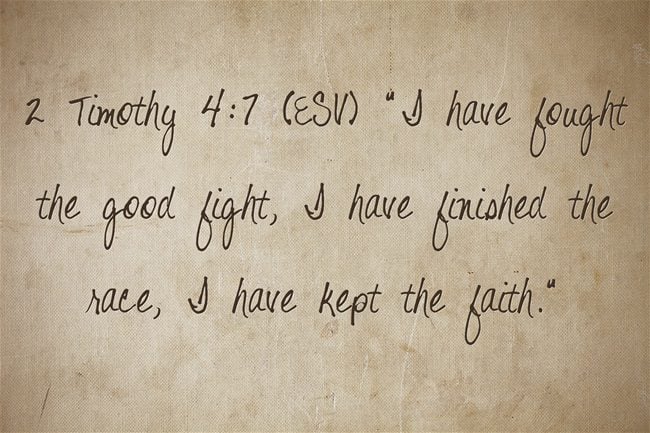 2 Timothy 4:7 (ESV) "I have fought
the good fight, I have finished the
race, I have kept the faith."